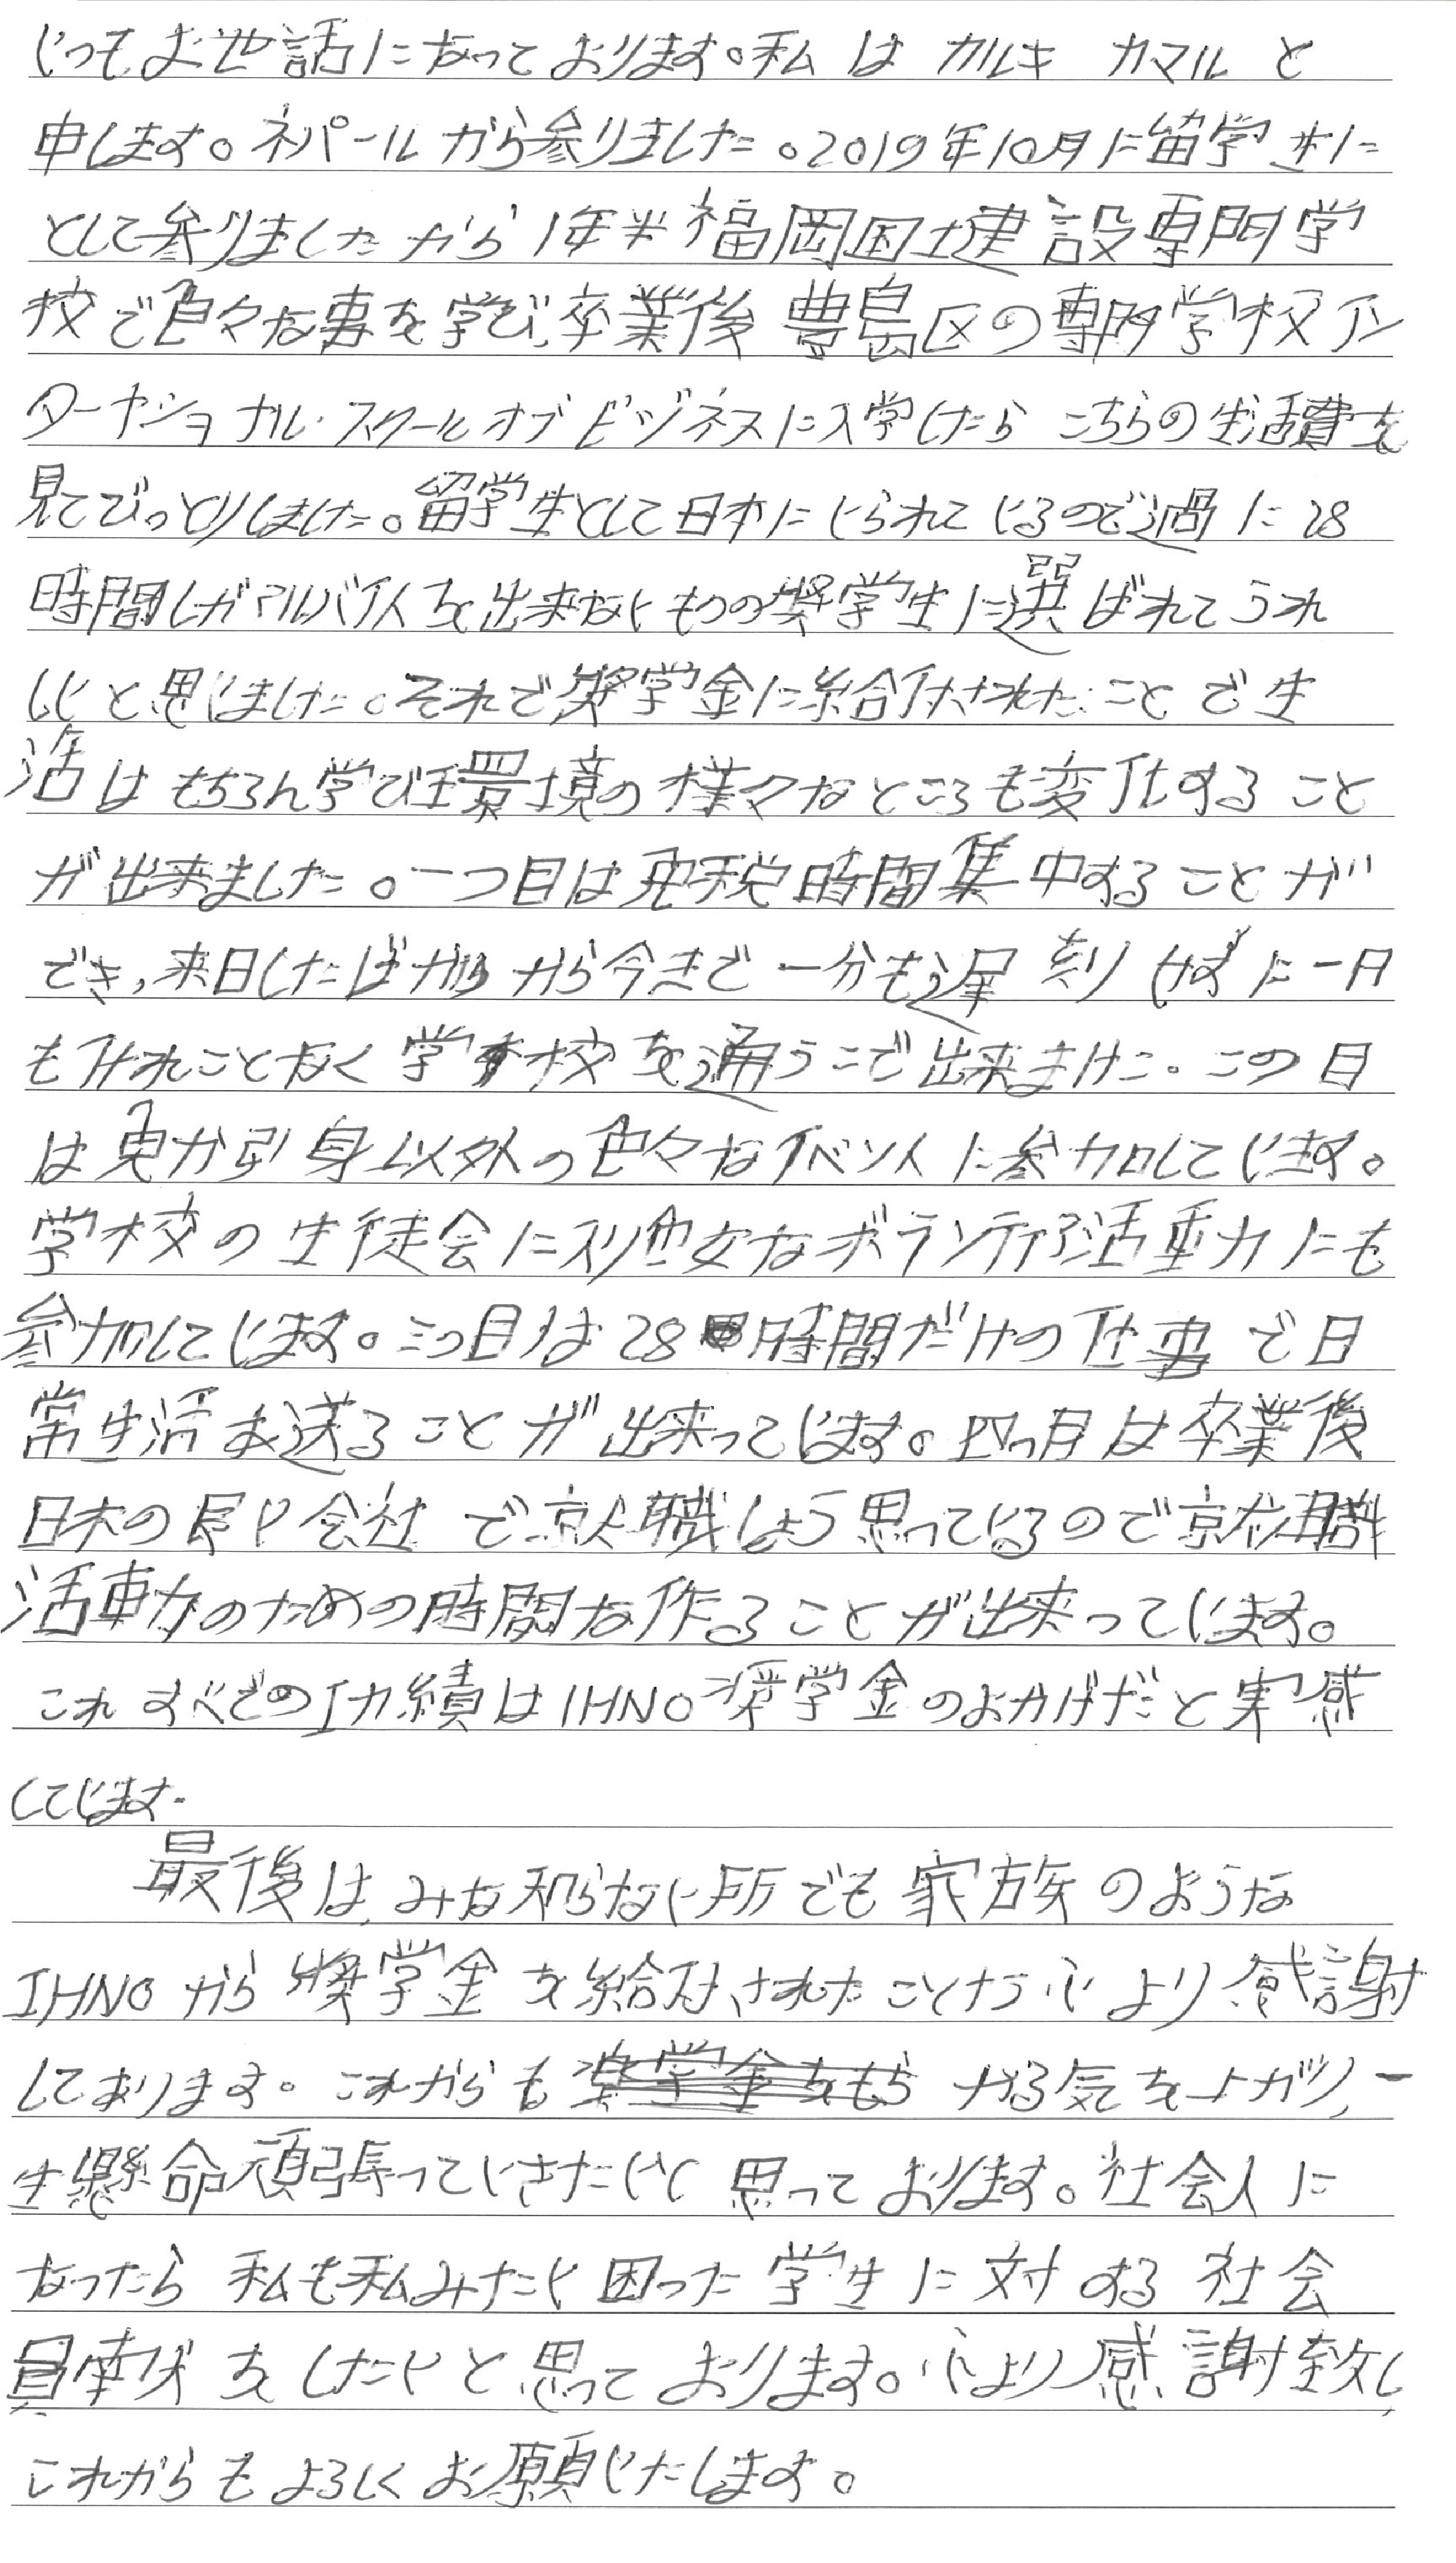 いつもお世話になっております。私は カルキ カマル と
申します。ネパールから参りました。2019年10月に留学生
として参りましたから1年半福岡国土建設専門学
校で色々な事を学び、卒業後 豊島区の専門学校イン
ターナショナル・スクールオブビジネスに入学したら こちらの生活費を
見てびっくりしました。留学生として日本に られているので週に28
時間しかアルバイトを出来ないものの奨学生に選ばれてうれ
しいと思いました。それで奨学金に給付されたことで生
活は もちろん学び環境の様々なところも変化すること
が出来ました。一つ目は 時間集中することが
でき、来日したばかりから今まで 一分も遅刻せずに一日
も なく 学校を通うこで出来ました。この日
は 以外の色々なイベントに参加しています。
学校の生徒会に入り色々なボランティア活動にも
参加しています。三つ目は28時間だけの仕事で日
常生活お送ることが出来っています。四つ目は卒業後
日本の良い会社で就職しよう思っているので就職
活動のための時間な作ることが出来っています。
これ すべての功績はIHNO奨学金のおかげだと実感
しています.
最後は、みな知らない所でも家族のような
IHNOから奨学金を給付されたこと 心より感謝
しております。これからも やる気を上がり、一
生懸命頑張っていきたいと思っております。社会人に
なったら 私も私みたい困った学生に対する社会
貢献をしたいと思っております。心より感謝致し
これからもよろしくお願いたします。